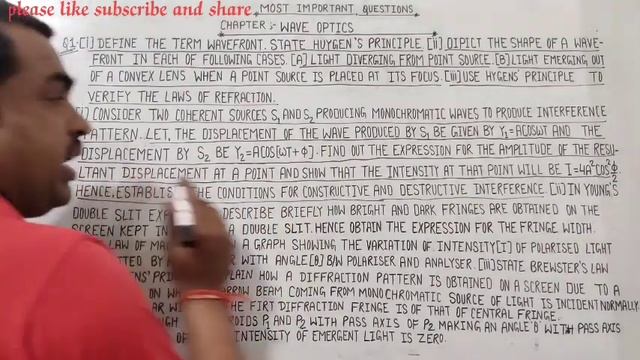 please like subscribe and share
MOST IMPORTANT QUESTIONS
CHAPTER:- WAVE OPTICS
Q1.[i] DEFINE THE TERM WAVEFRONT. STATE HUYGEN'S PRINCIPLE [ii] DIPICT THE SHAPE OF A WAVE-
FRONT IN EACH OF FOLLOWING CASES. [A] LIGHT DIVERGING FROM POINT SOURCE. [B] LIGHT EMERGING OUT
OF A CONVEX LENS WHEN A POINT SOURCE IS PLACED AT ITS FOCUS. [iii] USE HYGENS' PRINCIPLE TO
VERIFY THE LAWS OF REFRACTION.
CONSIDER TWO COHERENT SOURCES S₁ AND S₂ PRODUCING MONOCHROMATIC WAVES TO PRODUCE INTERFERENCE
PATTERN. LET, THE DISPLACEMENT OF THE WAVE PRODUCED BY S₁ BE GIVEN BY Y₁=ACOSWT AND THE
DISPLACEMENT BY S₂ BE Y₂=ACOS[WT+Φ]. FIND OUT THE EXPRESSION FOR THE AMPLITUDE OF THE RESU-
LTANT DISPLACEMENT AT A POINT AND SHOW THAT THE INTENSITY AT THAT POINT WILL BE I=4A²COS²Φ/2
HENCE, ESTABLIS THE CONDITIONS FOR CONSTRUCTIVE AND DESTRUCTIVE INTERFERENCE. [ii] IN YOUNG'S
DOUBLE SLIT DESCRIBE BRIEFLY HOW BRIGHT AND DARK FRINGES ARE OBTAINED ON THE
SCREEN KEPT IN A DOUBLE SLIT. HENCE OBTAIN THE EXPRESSION FOR THE FRINGE WIDTH.
LAW OF A GRAPH SHOWING THE VARIATION OF INTENSITY[I] OF POLARISED LIGHT
BY WITH ANGLE[θ] B/W POLARISER AND ANALYSER. [iii] STATE BREWSTER'S LAW
HOW A DIFFRACTION PATTERN IS OBTAINED ON A SCREEN DUE TO A
ON BEAM COMING FROM MONOCHROMATIC SOURCE OF LIGHT IS INCIDENT NORMALLY
OF THE FIRT DIFFRACTION FRINGE IS OF THAT OF CENTRAL FRINGE.
P₁ AND P₂ WITH PASS AXIS OF P₂ MAKING AN ANGLE 'θ' WITH PASS AXIS
OF INTENSITY OF EMERGENT LIGHT IS ZERO.